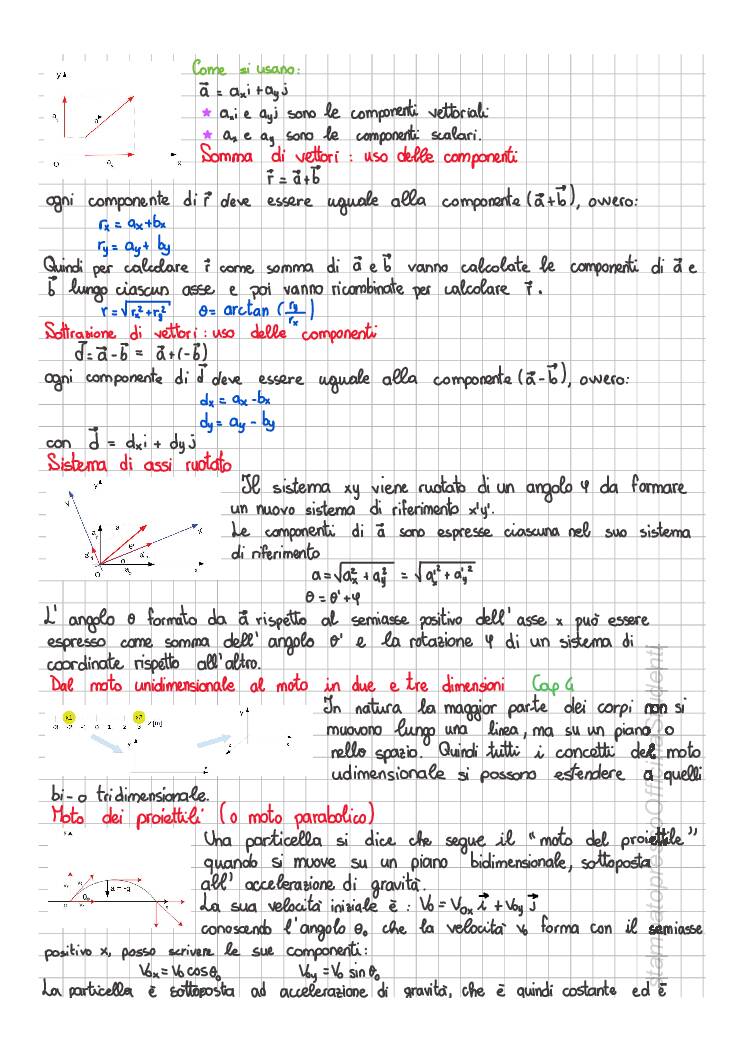 Come si usano:
a⃗ = aₓi + aᵧj
★ aₓi e aᵧj sono le componenti vettoriali
★ aₓ e aᵧ sono le componenti scalari.
Somma di vettori : uso delle componenti
r⃗ = a⃗+b⃗
ogni componente di r⃗ deve essere uguale alla componente (a⃗+b⃗), ovvero:
rₓ = aₓ+bₓ
rᵧ = aᵧ+ bᵧ
Quindi per calcolare r⃗ come somma di a⃗ e b⃗ vanno calcolate le componenti di a⃗ e
b⃗ lungo ciascun asse e poi vanno ricombinate per calcolare r⃗.
r = √(rₓ²+rᵧ²) θ= arctan (rᵧ/rₓ)
Sottrazione di vettori : uso delle componenti
d⃗ = a⃗-b⃗ = a⃗+(-b⃗)
ogni componente di d⃗ deve essere uguale alla componente (a⃗-b⃗), ovvero:
dₓ = aₓ -bₓ
dᵧ = aᵧ - bᵧ
con d⃗ = dₓi + dᵧj
Sistema di assi ruotato
Il sistema xy viene ruotato di un angolo φ da formare
un nuovo sistema di riferimento x'y'.
Le componenti di a⃗ sono espresse ciascuna nel suo sistema
di riferimento
a = √(aₓ² + aᵧ²) = √(a'ₓ² + a'ᵧ²)
θ = θ'+φ
L' angolo θ formato da a⃗ rispetto al semiasse positivo dell' asse x può essere
espresso come somma dell' angolo θ' e la rotazione φ di un sistema di
coordinate rispetto all'altro.
Dal moto unidimensionale al moto in due e tre dimensioni Cap 4
x1 x2
-3 -2 -1 0 1 2 3 x [m]
In natura la maggior parte dei corpi non si
muovono lungo una linea, ma su un piano o
nello spazio. Quindi tutti i concetti del moto
udimensionale si possono estendere a quelli
bi- o tridimensionale.
Moto dei proiettili (o moto parabolico)
Una particella si dice che segue il "moto del proiettile"
quando si muove su un piano bidimensionale, sottoposta
all' accelerazione di gravità.
a = -g
La sua velocità iniziale è : V₀ = V₀ₓ i⃗ + V₀ᵧ j⃗
conoscendo l'angolo θ₀ che la velocità v₀ forma con il semiasse
positivo x, posso scrivere le sue componenti:
V₀ₓ = V₀ cosθ₀ V₀ᵧ = V₀ sinθ₀
La particella è sottoposta ad accelerazione di gravità, che è quindi costante ed è